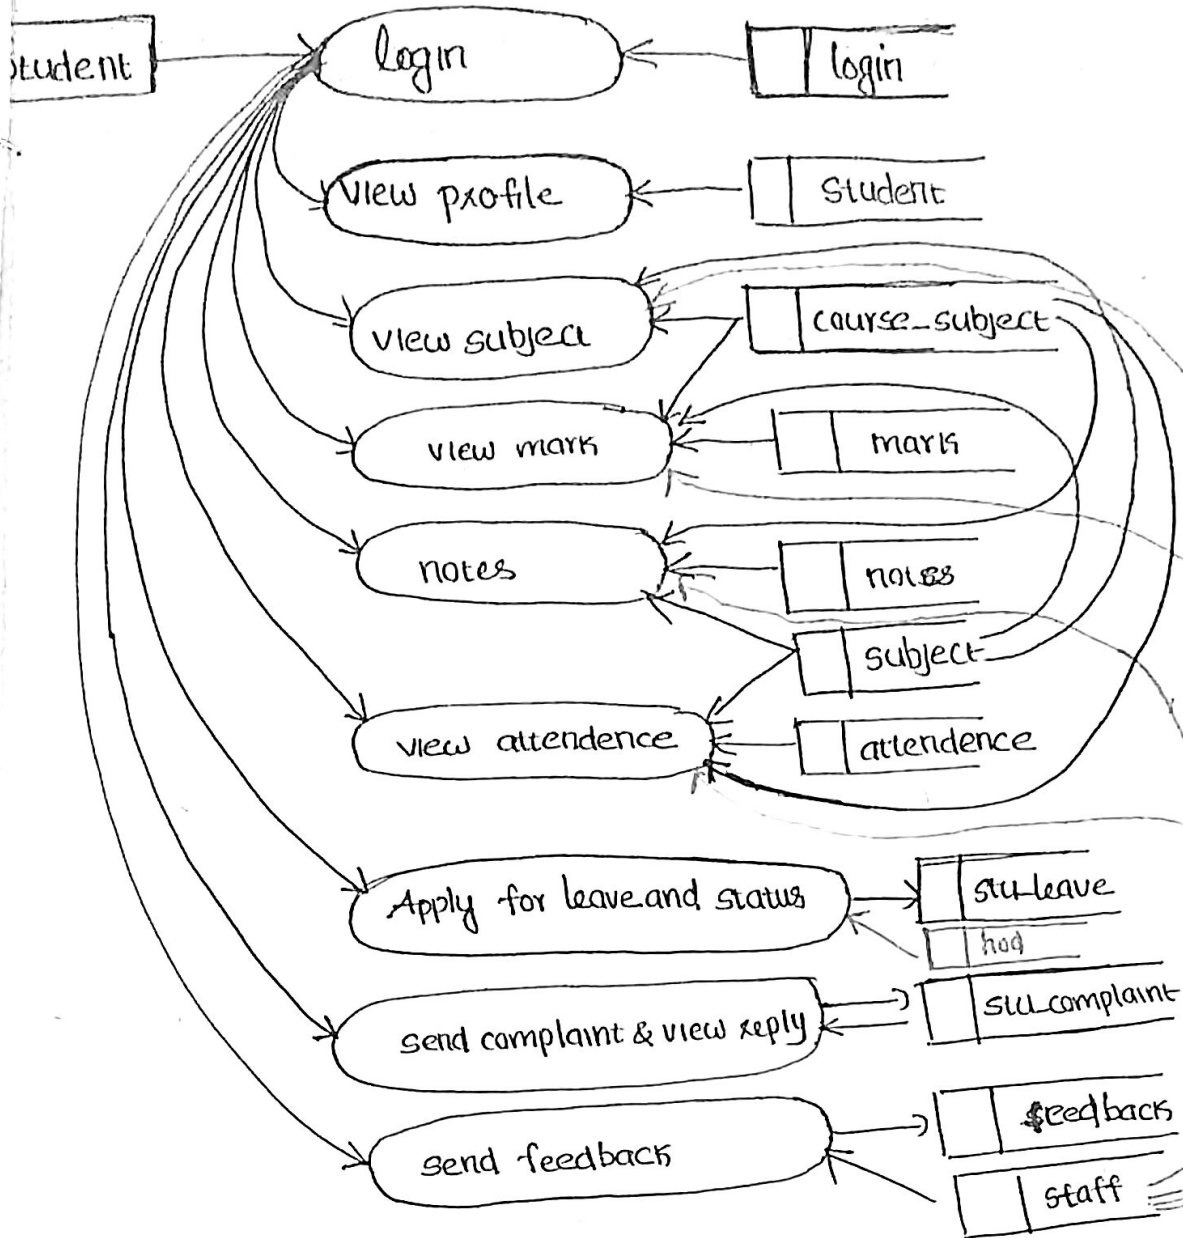 Student
login
login
view profile
student
view subject
course_subject
view mark
mark
notes
notes
subject
view attendence
attendence
Apply for leave and status
stu_leave
hod
send complaint & view reply
stu_complaint
send feedback
feedback
staff